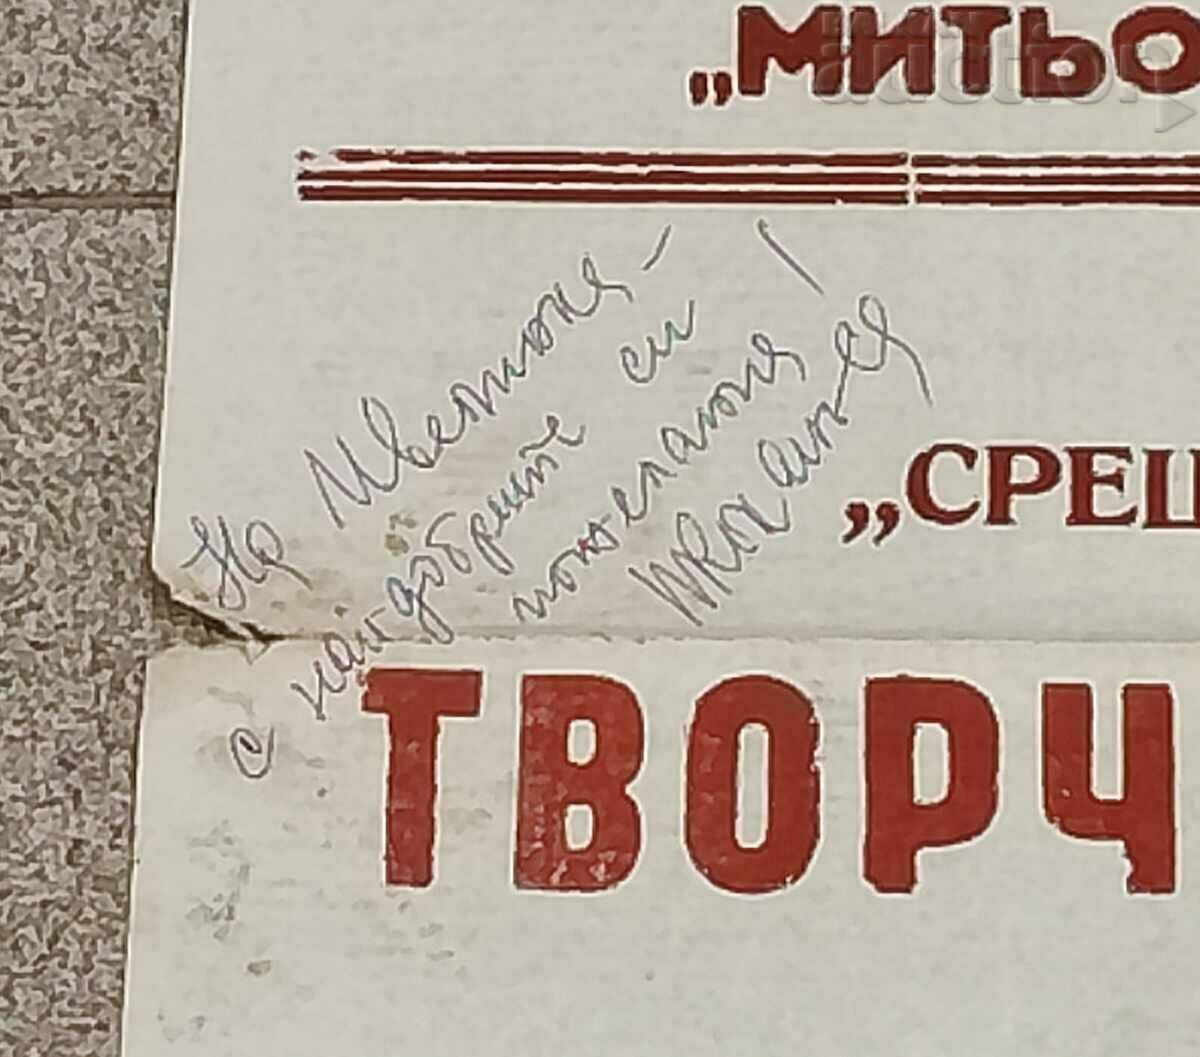 „МИТЬО
auction
На Цветана -
с най-добрите си
пожелания!
„СРЕЩ
ТВОРЧ